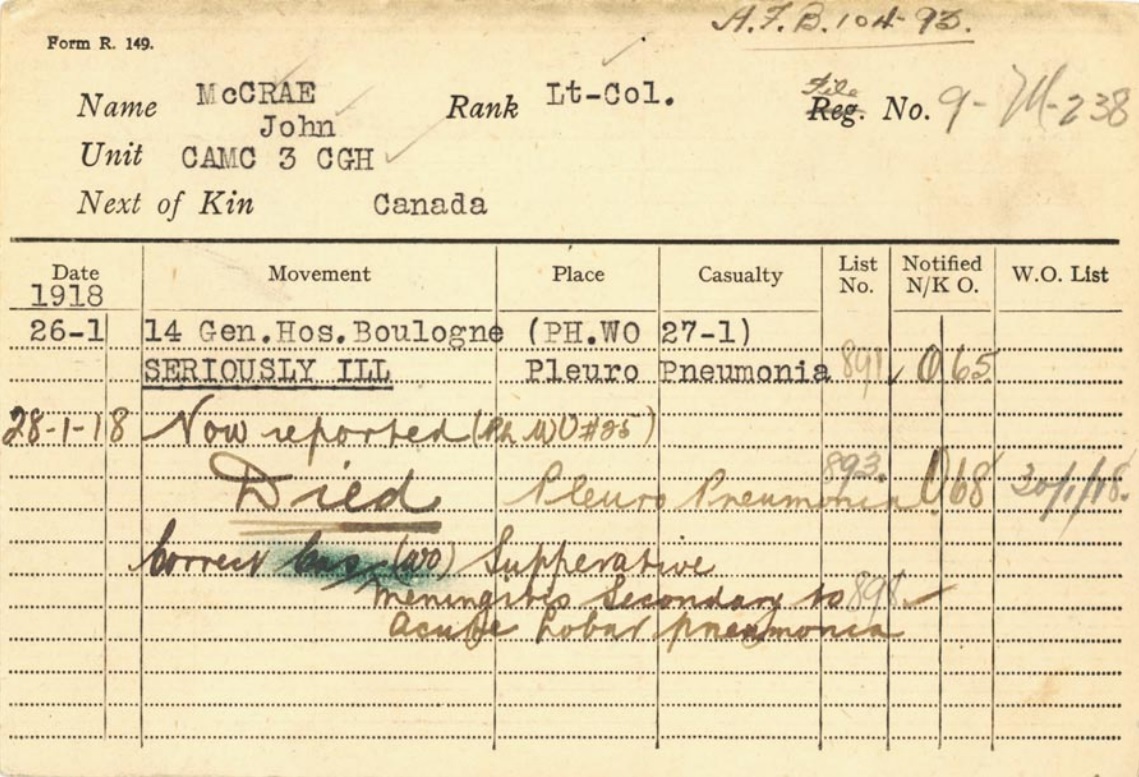 A.F.B. 104-93.
Form R. 149.
Name McCRAE Rank Lt-Col. File Reg. No. 9-M-238
John
Unit CAMC 3 CGH
Next of Kin Canada
Date Movement Place Casualty List No. Notified N/K O. W.O. List
1918
26-1 14 Gen.Hos.Boulogne (PH.WO 27-1)
SERIOUSLY ILL Pleuro Pneumonia 891 O 65
28-1-18 Now reported (Ph WO #25)
Died Pleuro Pneumonia 893. O 68 30/1/18.
Correct Cas (WO) Supperative
Meningitis Secondary to 898
Acute Lobar pneumonia